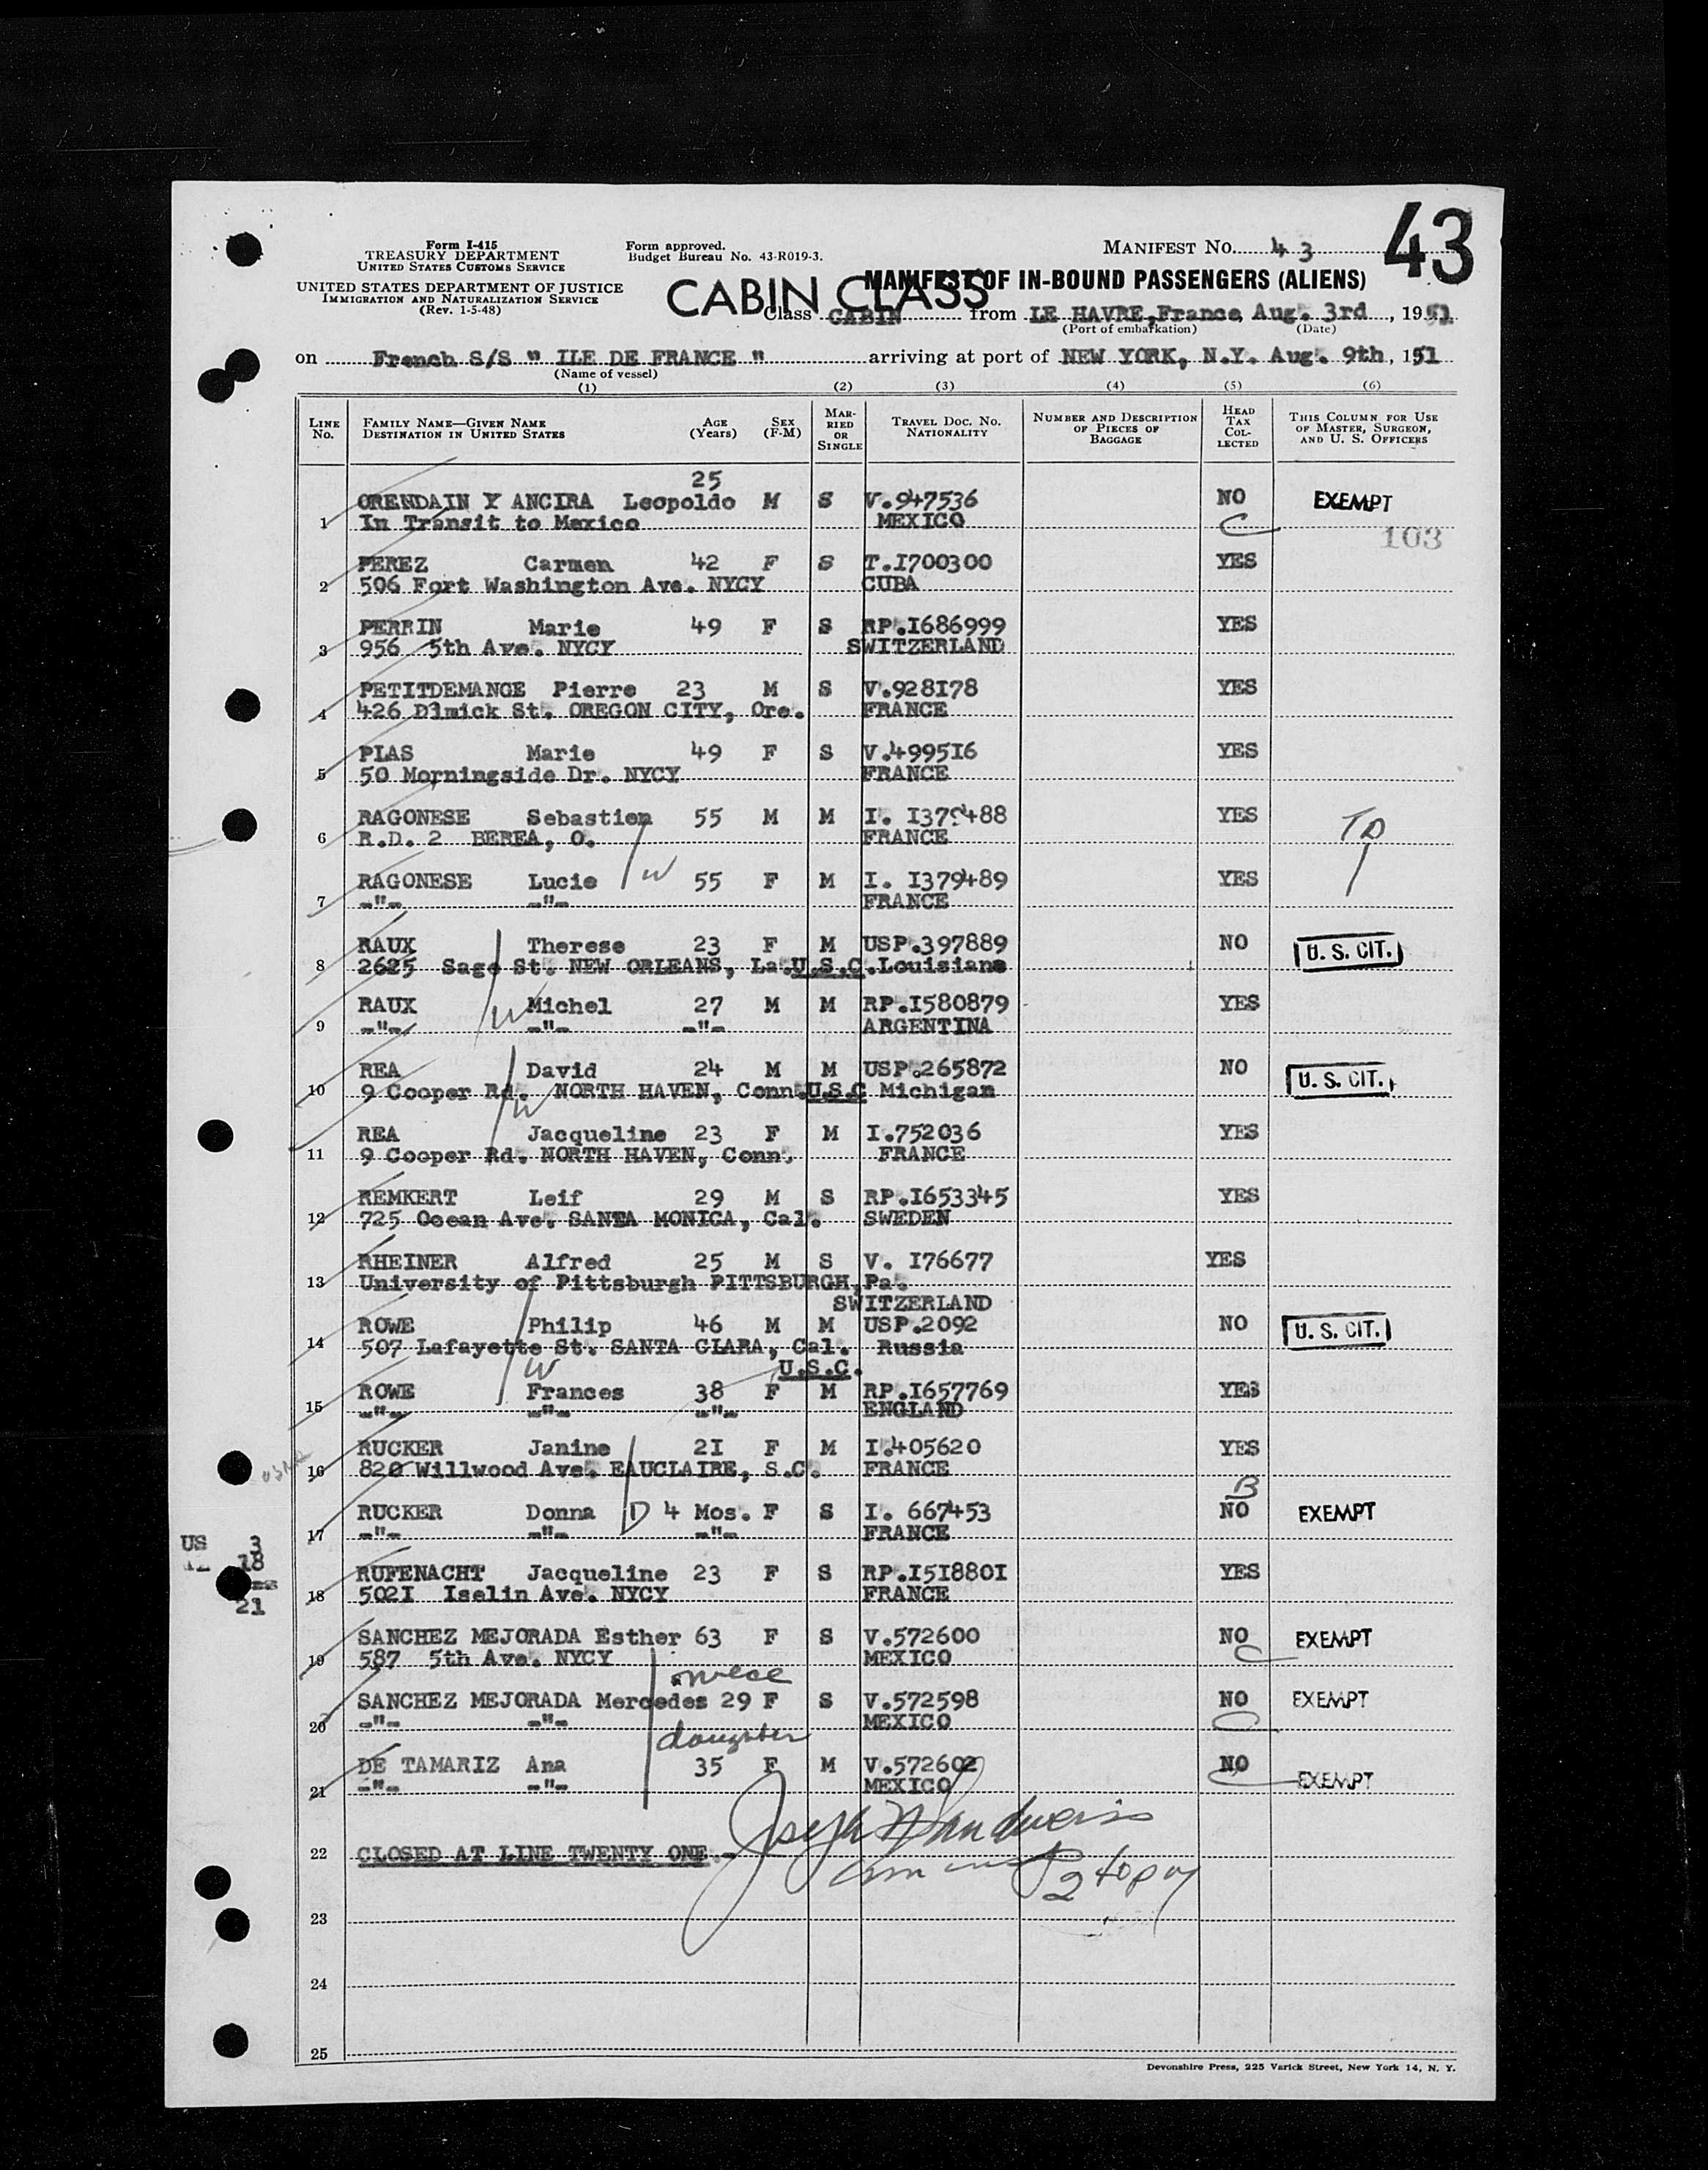 43
Form I-415
TREASURY DEPARTMENT
UNITED STATES CUSTOMS SERVICE
UNITED STATES DEPARTMENT OF JUSTICE
IMMIGRATION AND NATURALIZATION SERVICE
(Rev. 1-5-48)
Form approved.
Budget Bureau No. 43-R019-3.
MANIFEST No. 43
MANIFEST OF IN-BOUND PASSENGERS (ALIENS)
CABIN CLASS
Class CABIN from LE HAVRE, France, Aug. 3rd, 1951
(Port of embarkation) (Date)
on French S/S " ILE DE FRANCE " arriving at port of NEW YORK, N.Y. Aug. 9th, 151
(Name of vessel)
(1) (2) (3) (4) (5) (6)
LINE No. FAMILY NAME—GIVEN NAME DESTINATION IN UNITED STATES AGE (Years) SEX (F-M) MARRIED OR SINGLE TRAVEL DOC. NO. NATIONALITY NUMBER AND DESCRIPTION OF PIECES OF BAGGAGE HEAD TAX COLLECTED THIS COLUMN FOR USE OF MASTER, SURGEON, AND U. S. OFFICERS
25
ORENDAIN Y ANCIRA Leopoldo M S V.947536 NO EXEMPT
1 In Transit to Mexico MEXICO C
103
PEREZ Carmen 42 F S T.I700300 YES
2 506 Fort Washington Ave. NYCY CUBA
PERRIN Marie 49 F S RP.I686999 YES
3 956 5th Ave. NYCY SWITZERLAND
PETITDEMANGE Pierre 23 M S V.928I78 YES
4 426 Dimick St. OREGON CITY, Ore. FRANCE
PIAS Marie 49 F S V.4995I6 YES
5 50 Morningside Dr. NYCY FRANCE
RAGONESE Sebastien 55 M M I. I379488 YES
6 R.D. 2 BEREA, O. FRANCE TD
RAGONESE Lucie W 55 F M I. I379489 YES
7 -"- -"- FRANCE
RAUX Therese 23 F M USP.397889 NO U. S. CIT.
8 2625 Sage St. NEW ORLEANS, La.U.S.C.Louisiane
RAUX Michel 27 M M RP.I580879 YES
9 -"- W -"- -"- ARGENTINA
REA David 24 M M USP.265872 NO U. S. CIT.
10 9 Cooper Rd. NORTH HAVEN, Conn.U.S.C Michigan
W
REA Jacqueline 23 F M I.752036 YES
11 9 Cooper Rd. NORTH HAVEN, Conn. FRANCE
REMKERT Leif 29 M S RP.I653345 YES
12 725 Ocean Ave. SANTA MONICA, Cal. SWEDEN
RHEINER Alfred 25 M S V. I76677 YES
13 University of Pittsburgh PITTSBURGH, Pa.
SWITZERLAND
ROWE Philip 46 M M USP.2092 NO U. S. CIT.
14 507 Lafayette St. SANTA CLARA, Cal. Russia
W U.S.C.
ROWE Frances 38 F M RP.I657769 YES
15 -"- -"- -"- ENGLAND
RUCKER Janine 2I F M I.405620 YES
16 820 Willwood Ave. EAUCLAIRE, S.C. FRANCE
B
RUCKER Donna D 4 Mos. F S I. 667453 NO EXEMPT
17 -"- -"- -"- FRANCE
US 3
18
21
RUFENACHT Jacqueline 23 F S RP.I5I880I YES
18 502I Iselin Ave. NYCY FRANCE
SANCHEZ MEJORADA Esther 63 F S V.572600 NO EXEMPT
19 587 5th Ave. NYCY MEXICO C
niece
SANCHEZ MEJORADA Mercedes 29 F S V.572598 NO EXEMPT
20 -"- -"- MEXICO C
daughter
DE TAMARIZ Ana 35 F M V.572602 NO EXEMPT
21 -"- -"- MEXICO C
22 CLOSED AT LINE TWENTY ONE.-
Joseph
2 to pay
23
24
25
Devonshire Press, 225 Varick Street, New York 14, N. Y.